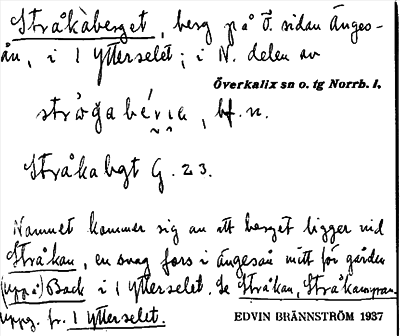 Stråkåberget, berg på Ö. sidan Änges-
ån, i 1 Ytterselet; i N. delen av
Överkalix sn o. tg Norrb. l.
strågabéria, bf. n.
Stråkabgt G. 23.
Namnet kommer sig an att berget ligger vid
Stråkan, en svag fors i ängesån mitt för gården
(uppå) Back i 1 Ytterselet. Se Stråkan, Stråkamyran.
Uppg. fr. 1 Ytterselet.
EDVIN BRÄNNSTRÖM 1937